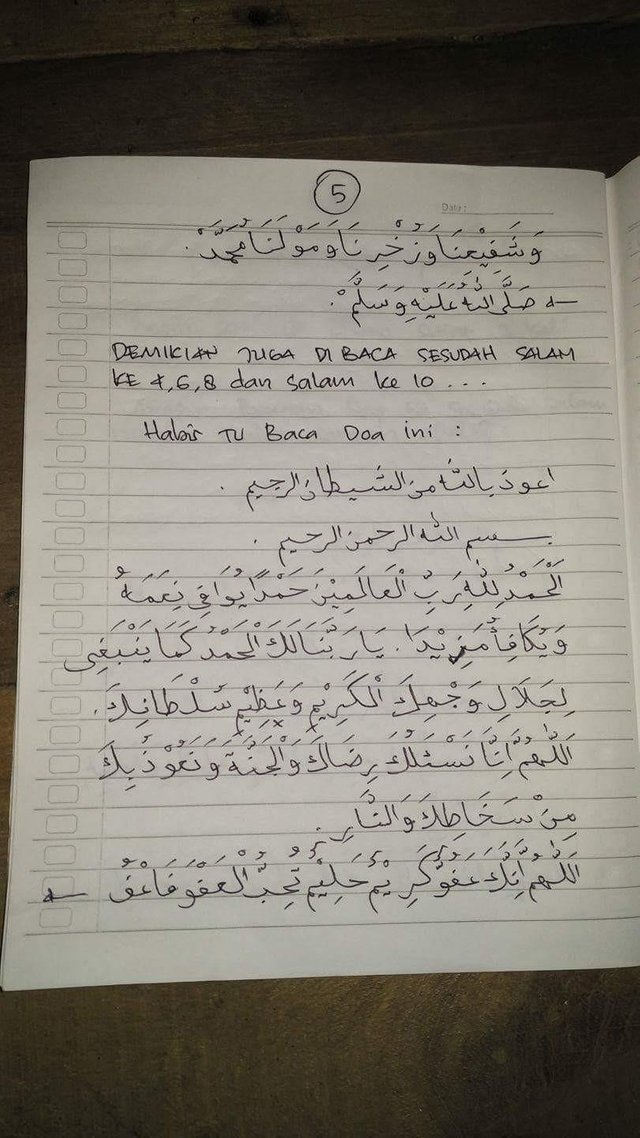 5
Date:
وَشَفِيْعِنَا وَزُخْرِنَا وَمَوْلَنَا مُحَمَّدْ.
صَلَّى اللهُ عَلَيْهِ وَسَلَّمْ.
DEMIKIAN JUGA DI BACA SESUDAH SALAM
KE 4,6,8 dan Salam ke 10 ...
Habis TU Baca Doa ini :
اعوذ بالله من الشيطان الرجيم .
بسم الله الرحمن الرحيم .
اَلْحَمْدُ لِلّٰهِ رَبِّ الْعَالَمِيْنَ حَمْدًا يُوَا فِي نِعَمَهُ
وَيُكَافِأُ مَزِيْدَا. يَارَبَّنَا لَكَ الْحَمْدُ كَمَا يَنْبَغِى
لِجَلَالِ وَجْهِكَ الْكَرِيْمِ وَعَظِيْمِ سُلْطَانِكَ.
اَللّٰهُمَّ اِنَّا نَسْئَلُكَ رِضَاكَ وَالْجَنَّةَ وَنَعُوْذُبِكَ
مِنْ سَخَاطِكَ وَالنَّارِ.
اَللّٰهُمَّ اِنَّكَ عَفُوٌّ كَرِيْمٌ حَلِيْمٌ تُحِبُّ الْعَفْوَ فَاعْفُ